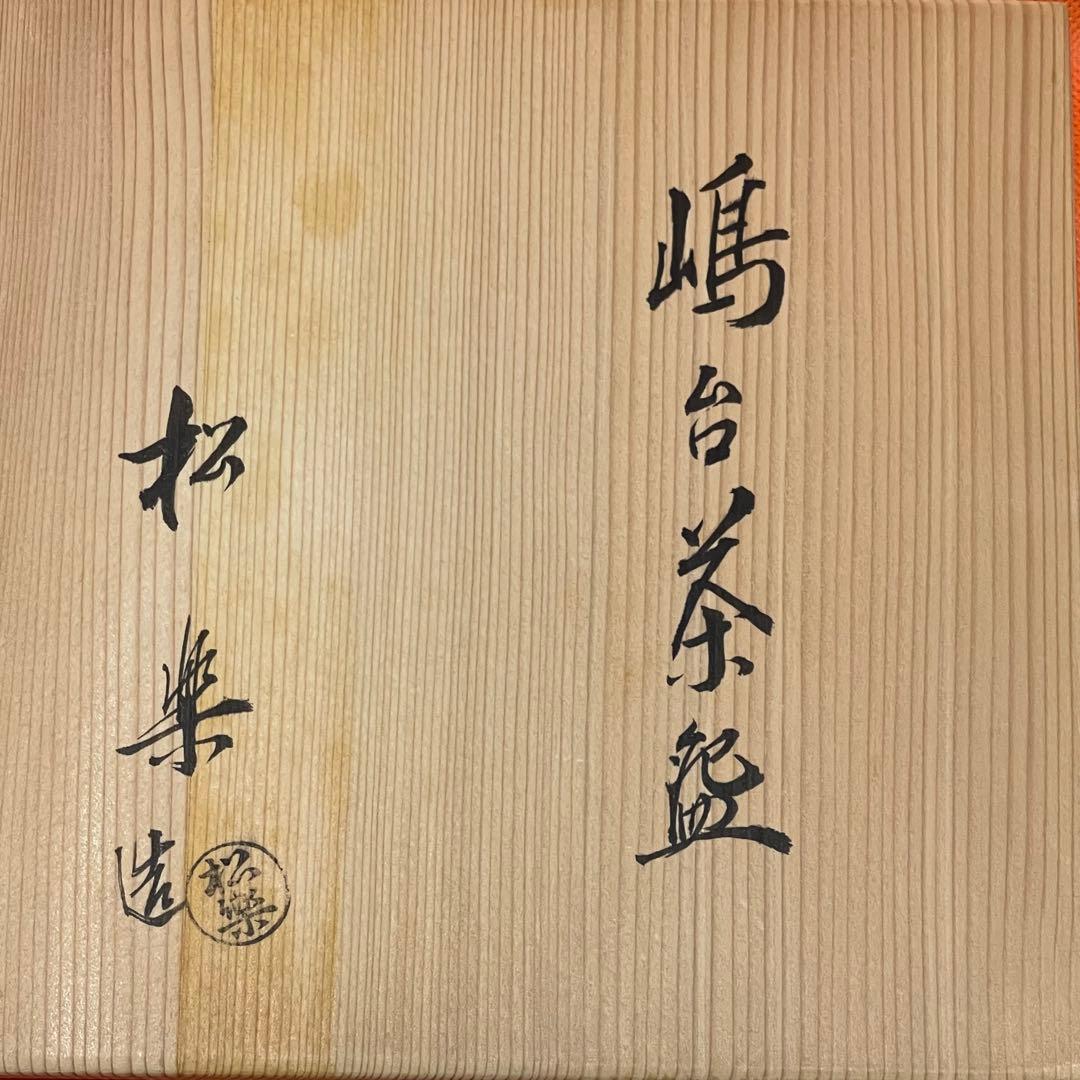 嶋台茶盌
松楽造
松樂